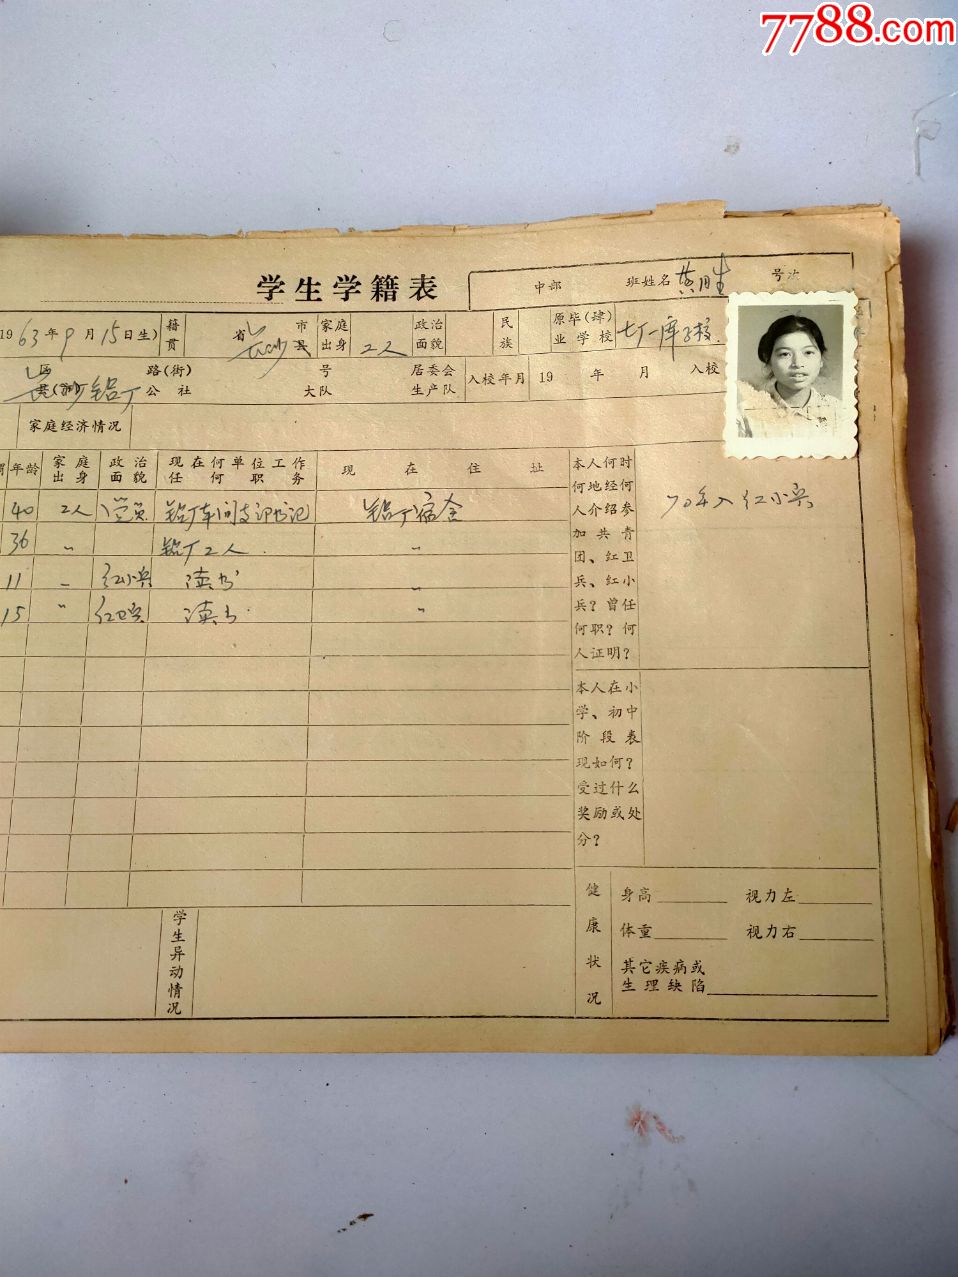 7788.com
学生学籍表
中部 班姓名 黄 号次
1963年9月15日生) 籍贯 省长沙市县 家庭出身 工人 政治面貌 民族 原毕(肄)业学校 七厂一库子校
区县(市) 铝厂 路(街)公社 号大队 居委会生产队 入校年月 19 年 月 入校
家庭经济情况
年龄 家庭出身 政治面貌 现在何单位工作任何职务 现在住址
40 工人 党员 铝厂车间支部书记 铝厂宿舍
36 〃 铝厂工人 〃
11 〃 红小兵 读书 〃
15 〃 红卫兵 读书 〃
本人何时
何地经何
人介绍参
加共青
团、红卫
兵、红小
兵?曾任
何职?何
人证明?
70年入红小兵
本人在小
学、初中
阶段表
现如何?
受过什么
奖励或处
分?
学生异动情况
健康状况
身高 视力左
体重 视力右
其它疾病或
生理缺陷